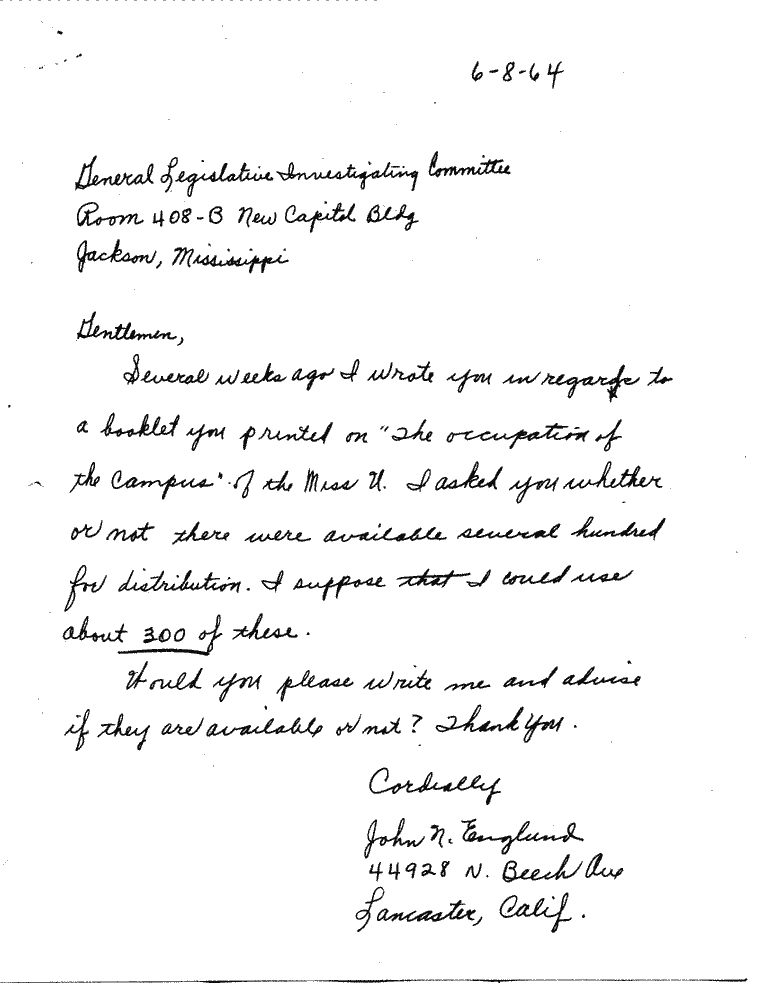 6-8-64
General Legislative Investigating Committee
Room 408-B New Capitol Bldg
Jackson, Mississippi
Gentlemen,
Several weeks ago I wrote you in regards to
a booklet you printed on "The occupation of
the Campus" of the Miss U. I asked you whether
or not there were available several hundred
for distribution. I suppose that I could use
about 300 of these.
Would you please write me and advise
if they are available or not? Thank You.
Cordially
John N. Englund
44928 N. Beech Ave
Lancaster, Calif.